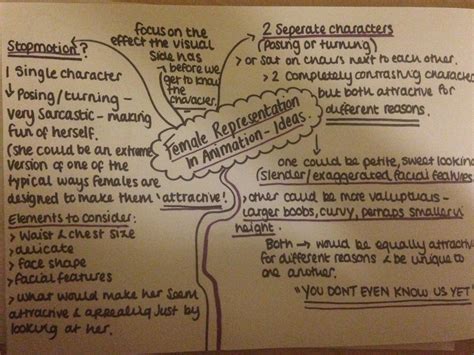 Female Representation
In Animation - Ideas.
focus on the
effect the visual
side has
↳ before we
get to know
the character.
Stopmotion?
1 Single character
↳ Posing/turning -
Very Sarcastic - making
fun of herself.
(she could be an extreme
version of one of the
typical ways females are
designed to make them 'attractive'.
Elements to consider:
> Waist & chest size
> delicate
> face shape
> facial features
> what would make her seem
attractive & appealing Just by
looking at her.
2 Seperate characters
(Posing or turning)
> or sat on chairs next to each other.
> 2 Completely contrasting characters
but both attractive for
different reasons.
one could be petite, sweet looking
(slender/exaggerated facial features
other could be more valuptuous -
larger boobs, curvy, perhaps smaller in
height.
Both → would be equally attractive
for different reasons & be unique to
one another.
"YOU DONT EVEN KNOW US YET"